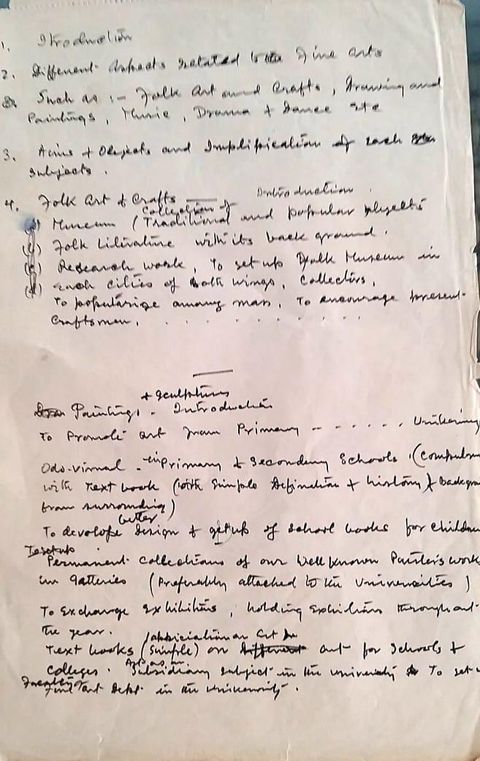 1. Itroduction
2. Different Aspects related to the Fine arts
Such as :- Folk Art and Crafts, Drawing and
Paintings, Music, Drama + Dance etc
3. Aims + Objects and Implification of each
Subjects.
4. Folk Art & Crafts — Introduction.
Museum (Collection of Traditional and popular objects
Folk Literature with its back ground.
Research work, To set up Folk Museum in
each cities of both wings, Collectors,
To popularize among man, To encourage present
Craftsmen, . . . . . . . . . .
Paintings + Sculptures - Introduction
To Promote art from Primary - - . . . . . .
in Primary & Secondary Schools (
with Text book (with Simple Definition + history)
from surrounding)
To develope better design & getup of school books for
To set up Permanent Collections of our well known Painter's work
in Galleries (Preferably attached to the Universities)
To Exchange Exhibitions, holding Exhibitions throughout
the year.
Text books (Simple) on art for Schools &
Colleges. Art as a Subsidiary subject in the university To set
Fine Art Dept. in the University.